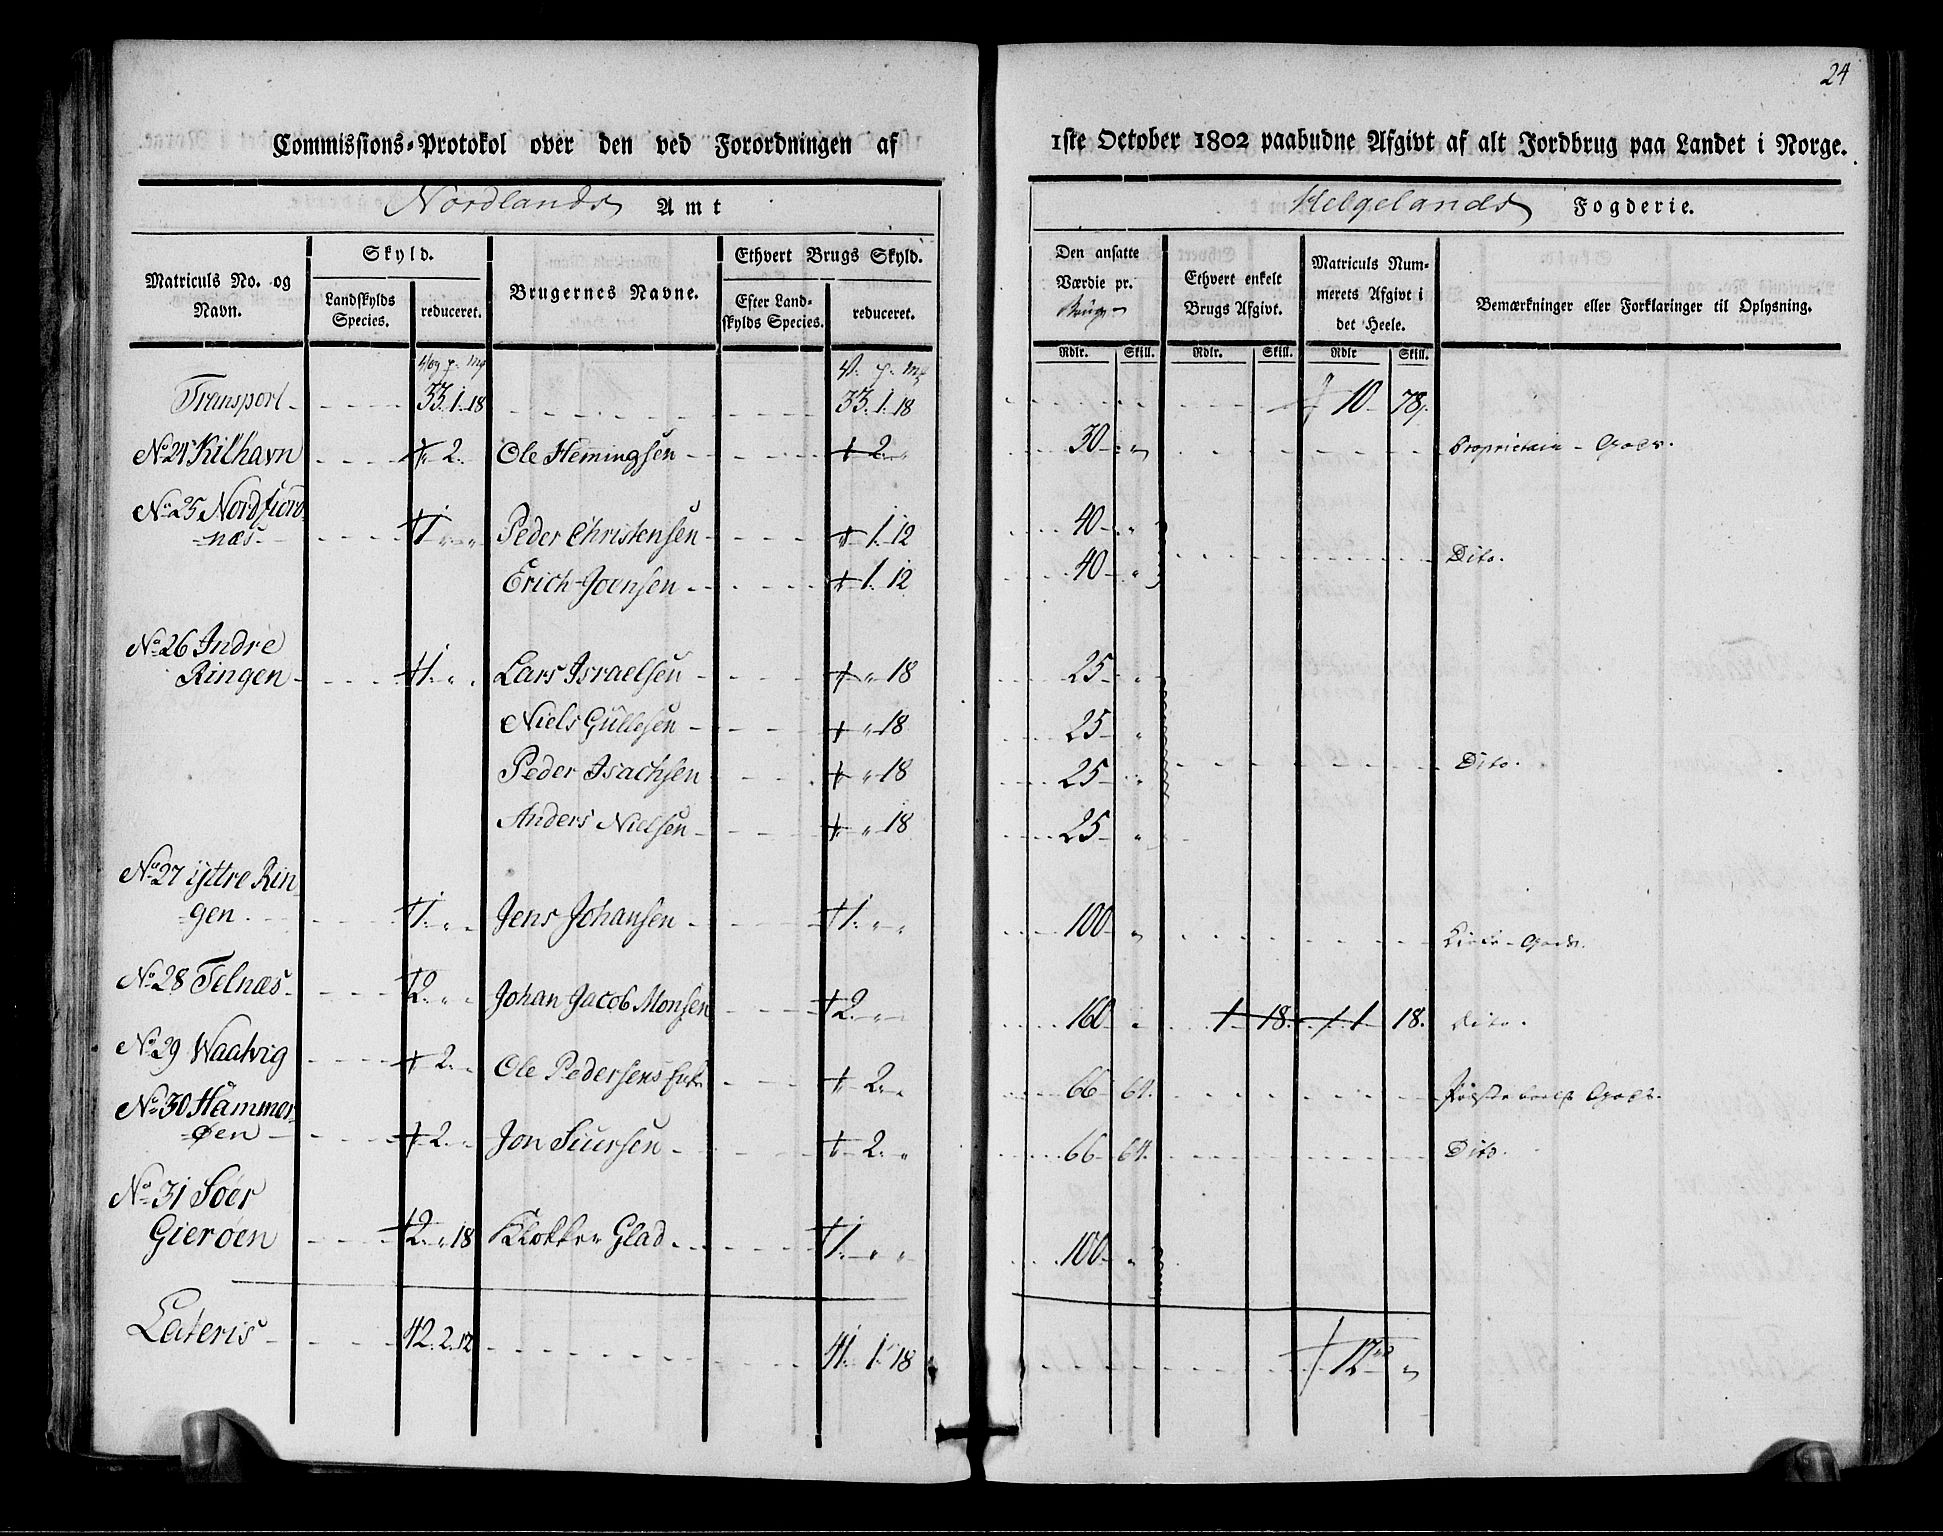 24
Commissions-Protokol over den ved Forordningen af
1ste October 1802 paabudne Afgivt af alt Jordbrug paa Landet i Norge.
Nordlands Amt
Helgelands Fogderie.
Matriculs No. og Navn.
Skyld.
Landskylds Species.
reduceret.
Brugernes Navne.
Ethvert Brugs Skyld.
Efter Landskylds Species.
reduceret.
Den ansatte Værdie pr. Brug
Ethvert enkelt Brugs Afgivt.
Matriculs Nummerets Afgivt i det Heele.
Bemærkninger eller Forklaringer til Oplysning.
Rdlr. Skill. Rdlr. Skill. Rdlr Skill.
Transport 33.1.18 33.1.18 10 78
No 24 Kilhavn 2 Ole Hemingsen 2 30 Proprietair-Gods.
No 25 Nordfiordnæs 1 Peder Christensen 1.12 40
Erich Joensen 1.12 40 Dito.
No 26 Indre Ringen 1 Lars Israelsen 18 25
Niels Gullesen 18 25
Peder Isachsen 18 25 Dito.
Anders Nielsen 18 25
No 27 ijttre Ringen 1 Jens Johansen 1 100 Gods.
No 28 Telnæs 2 Johan Jacob Monsen 2 160 1 18 1 18. Dito.
No 29 Waatvig 2 Ole Pedersens 2 66 64. Gods.
No 30 Hammerøen 2 Jon Siursen 2 66 64. Dito.
No 31 Söer Gierøen 2 18 Klokker Glad 1 100
Lateris 42.2.12 41.1.18 12